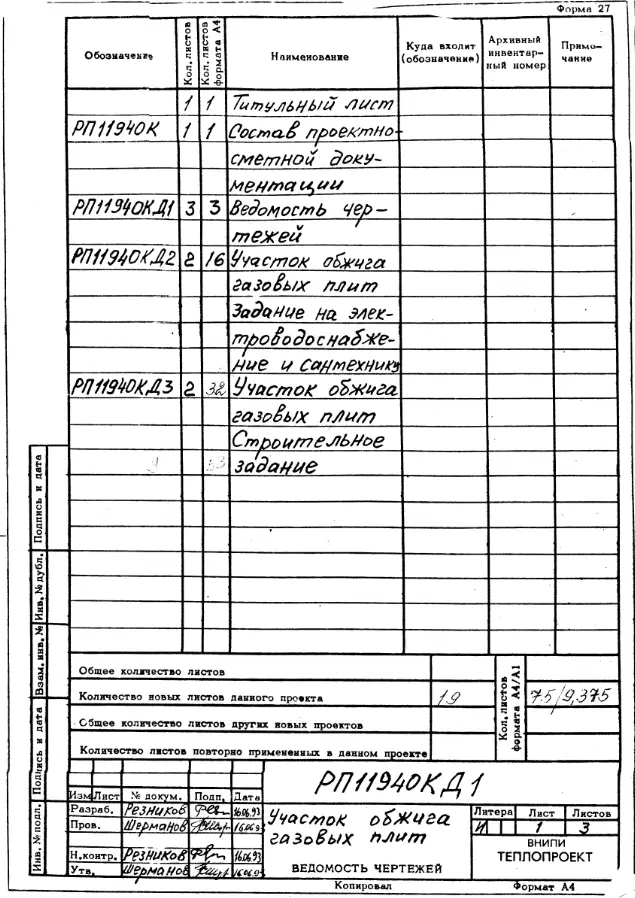 Форма 27
Обозначение Кол. листов Кол. листов формата А4 Наименование Куда входит (обозначение) Архивный инвентар-ный номер Приме-чание
1 1 Титульный лист
РП11940К 1 1 Состав проектно-
сметной доку-
ментации
РП11940КД1 3 3 Ведомость чер-
тежей
РП11940КД2 2 16 Участок обжига
газовых плит
Задание на элек-
троводоснабже-
ние и сантехнику
РП11940КД3 2 32 Участок обжига
газовых плит
Строительное
9 53 задание
Общее количество листов
Количество новых листов данного проекта 19
Общее количество листов других новых проектов
Количество листов повторно примененных в данном проекте
Кол. листов формата А4/А1 75/9,375
Инв. № подл. Подпись и дата Взам. инв. № Инв. № дубл. Подпись и дата
РП11940КД1
Изм Лист № докум. Подп. Дата
Разраб. Резников 16.06.93
Пров. Шерманов 16.06.93
Н.контр. Резников 16.06.93
Утв. Шерманов 16.06.93
Участок обжига
газовых плит
ВЕДОМОСТЬ ЧЕРТЕЖЕЙ
Литера Лист Листов
И 1 3
ВНИПИ
ТЕПЛОПРОЕКТ
Копировал Формат А4